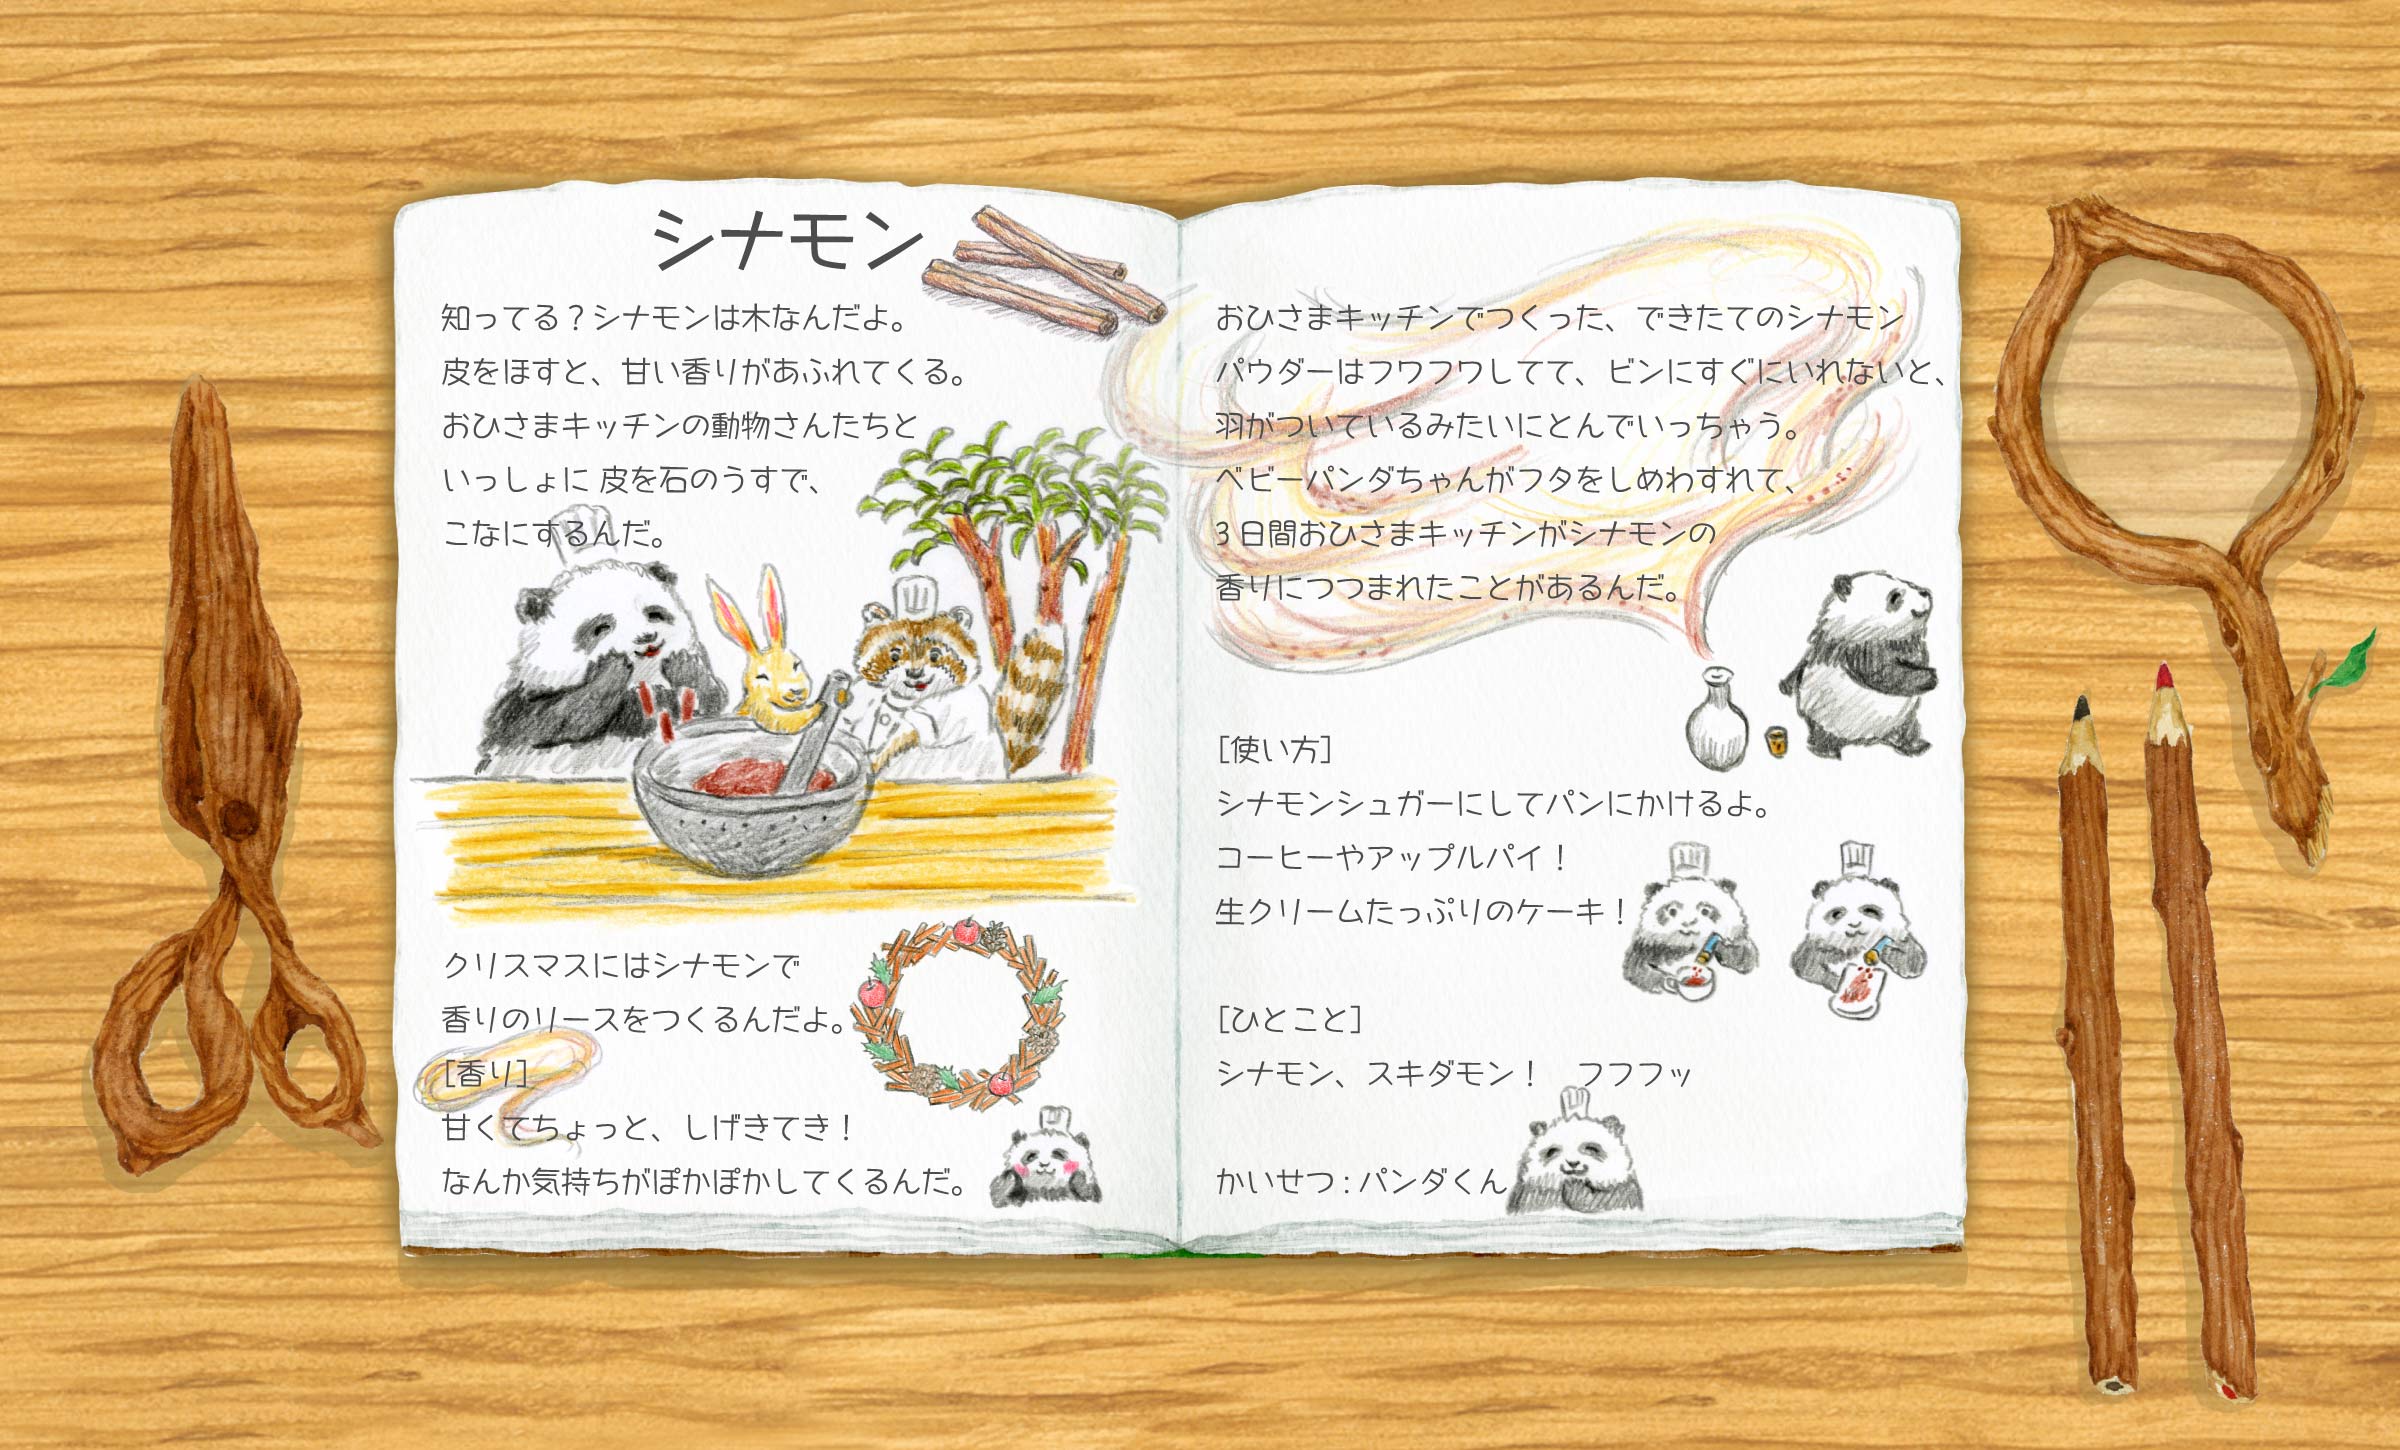 シナモン
知ってる？シナモンは木なんだよ。
皮をほすと、甘い香りがあふれてくる。
おひさまキッチンの動物さんたちと
いっしょに 皮を石のうすで、
こなにするんだ。
クリスマスにはシナモンで
香りのリースをつくるんだよ。
[香り]
甘くてちょっと、しげきてき！
なんか気持ちがぽかぽかしてくるんだ。
おひさまキッチンでつくった、できたてのシナモン
パウダーはフワフワしてて、ビンにすぐにいれないと、
羽がついているみたいにとんでいっちゃう。
ベビーパンダちゃんがフタをしめわすれて、
3 日間おひさまキッチンがシナモンの
香りにつつまれたことがあるんだ。
[使い方]
シナモンシュガーにしてパンにかけるよ。
コーヒーやアップルパイ！
生クリームたっぷりのケーキ！
[ひとこと]
シナモン、スキダモン！　フフフッ
かいせつ : パンダくん